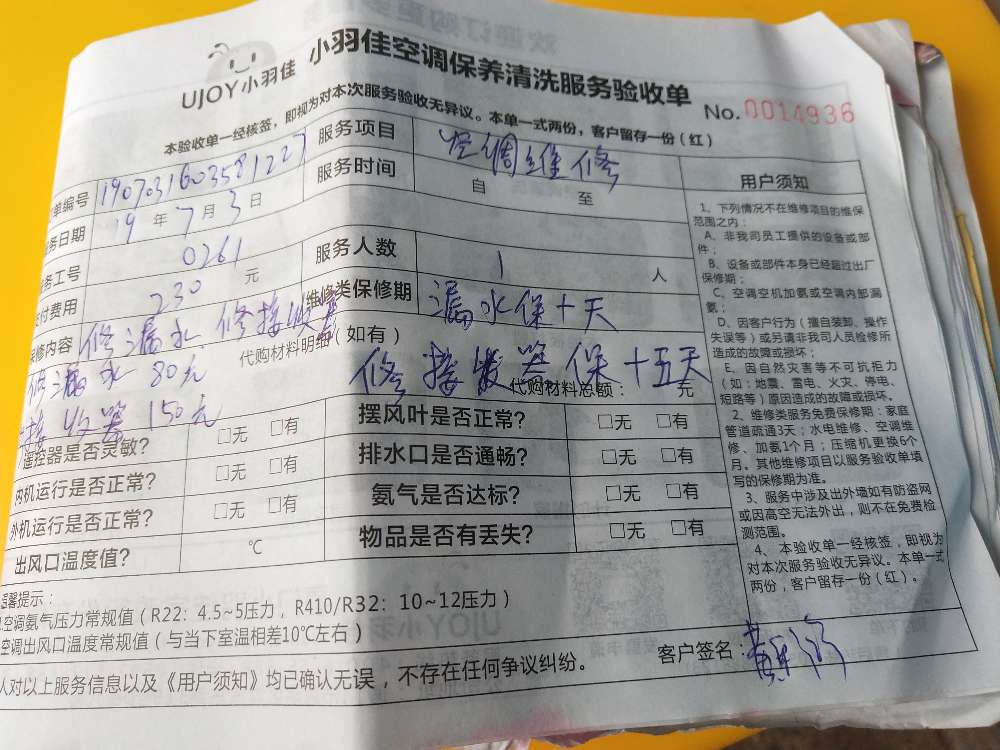 UJOY小羽佳 小羽佳空调保养清洗服务验收单
No.0014936
本验收单一经核签，即视为对本次服务验收无异议。本单一式两份，客户留存一份（红）
单编号 1907031603581227 服务项目 空调维修
务日期 19年7月3日 服务时间 自 至
务工号 0261 服务人数 1 人
付费用 230 元 维修类保修期 漏水保十天
保修内容 修漏水 修接收器 代购材料明细(如有) 修接收器保十五天
漏水 80元 代购材料总额： 元
接收器 150元
遥控器是否灵敏? □无 □有 摆风叶是否正常? □无 □有
内机运行是否正常? □无 □有 排水口是否通畅? □无 □有
外机运行是否正常? □无 □有 氨气是否达标? □无 □有
出风口温度值? ℃ 物品是否有丢失? □无 □有
温馨提示：
空调氨气压力常规值（R22：4.5~5压力，R410/R32：10~12压力）
空调出风口温度常规值（与当下室温相差10℃左右）
人对以上服务信息以及《用户须知》均已确认无误，不存在任何争议纠纷。 客户签名：
用户须知
1、下列情况不在维修项目的维保
范围之内：
A、非我司员工提供的设备或部
件；
B、设备或部件本身已经超过出厂
保修期；
C、空调空机加氨或空调内部漏
氨；
D、因客户行为（擅自装卸、操作
失误等）或另请非我司人员检修所
造成的故障或损坏；
E、因自然灾害等不可抗拒力
（如：地震、雷电、火灾、停电、
短路等）原因造成的故障或损坏。
2、维修类服务免费保修期：家庭
管道疏通3天；水电维修、空调维
修、加氨1个月；压缩机更换6个
月。其他维修项目以服务验收单填
写的保修期为准。
3、服务中涉及出外墙如有防盗网
或因高空无法外出，则不在免费检
测范围。
4、本验收单一经核签，即视为
对本次服务验收无异议。本单一式
两份，客户留存一份（红）。